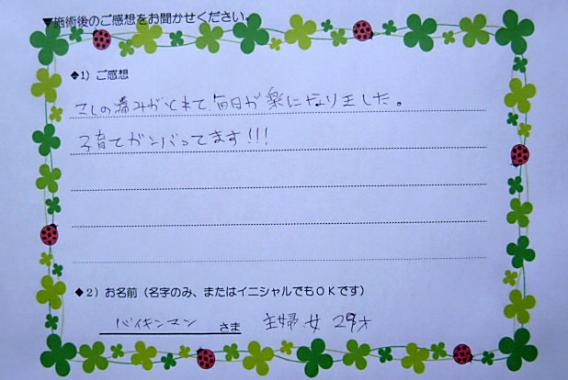 ▼施術後のご感想をお聞かせください。
◆1）ご感想
こしの痛みがとれて毎日が楽になりました。
子育てガンバってます!!!
◆2）お名前（名字のみ、またはイニシャルでもＯＫです）
バイキンマン さま 主婦 女 29才